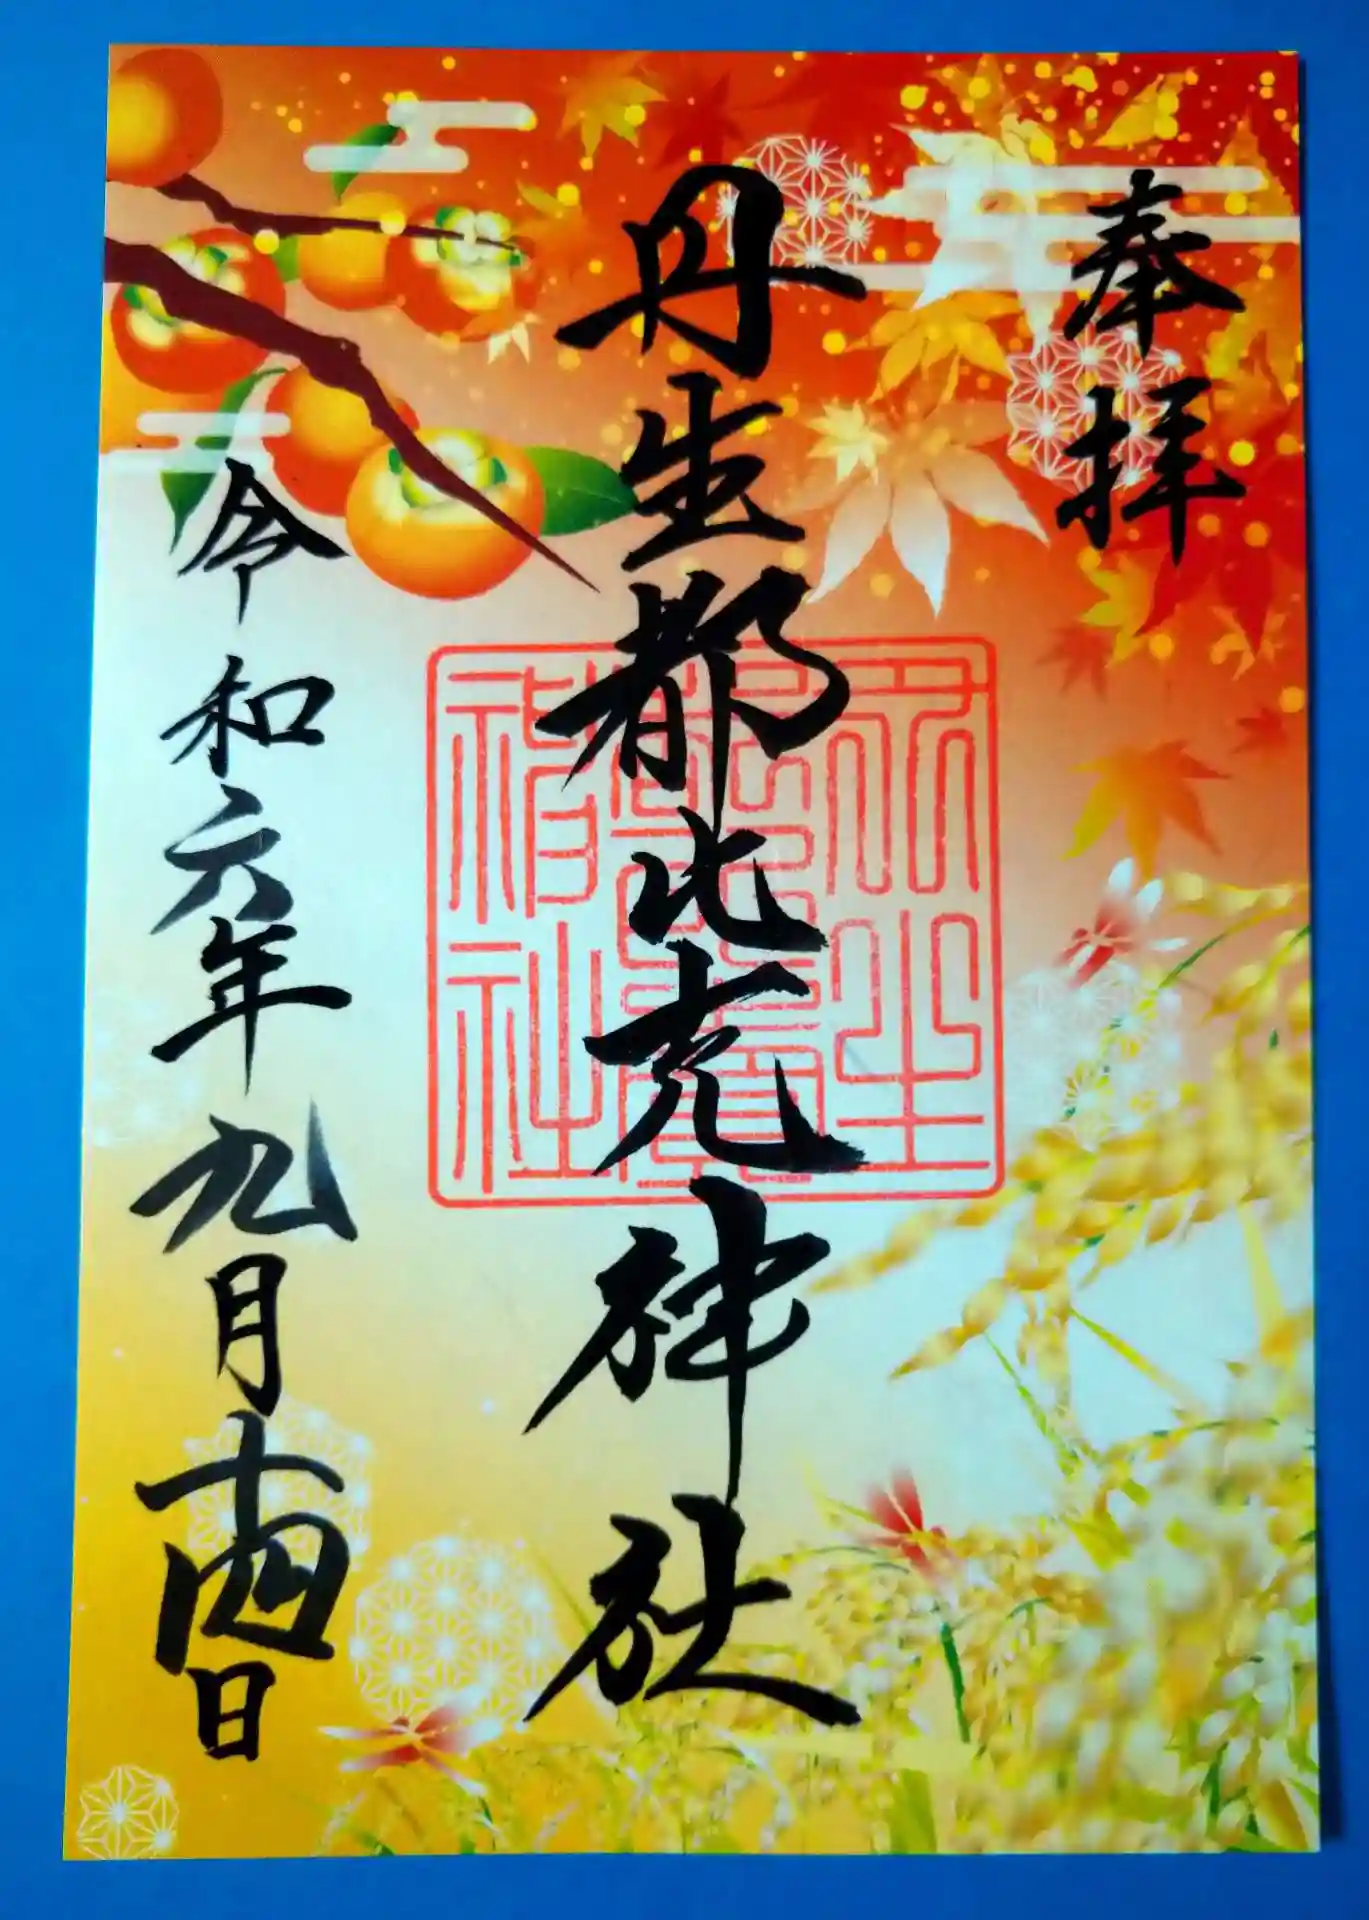 奉拝
丹生都比売神社
令和六年九月十四日
丹生
都比賣
神社